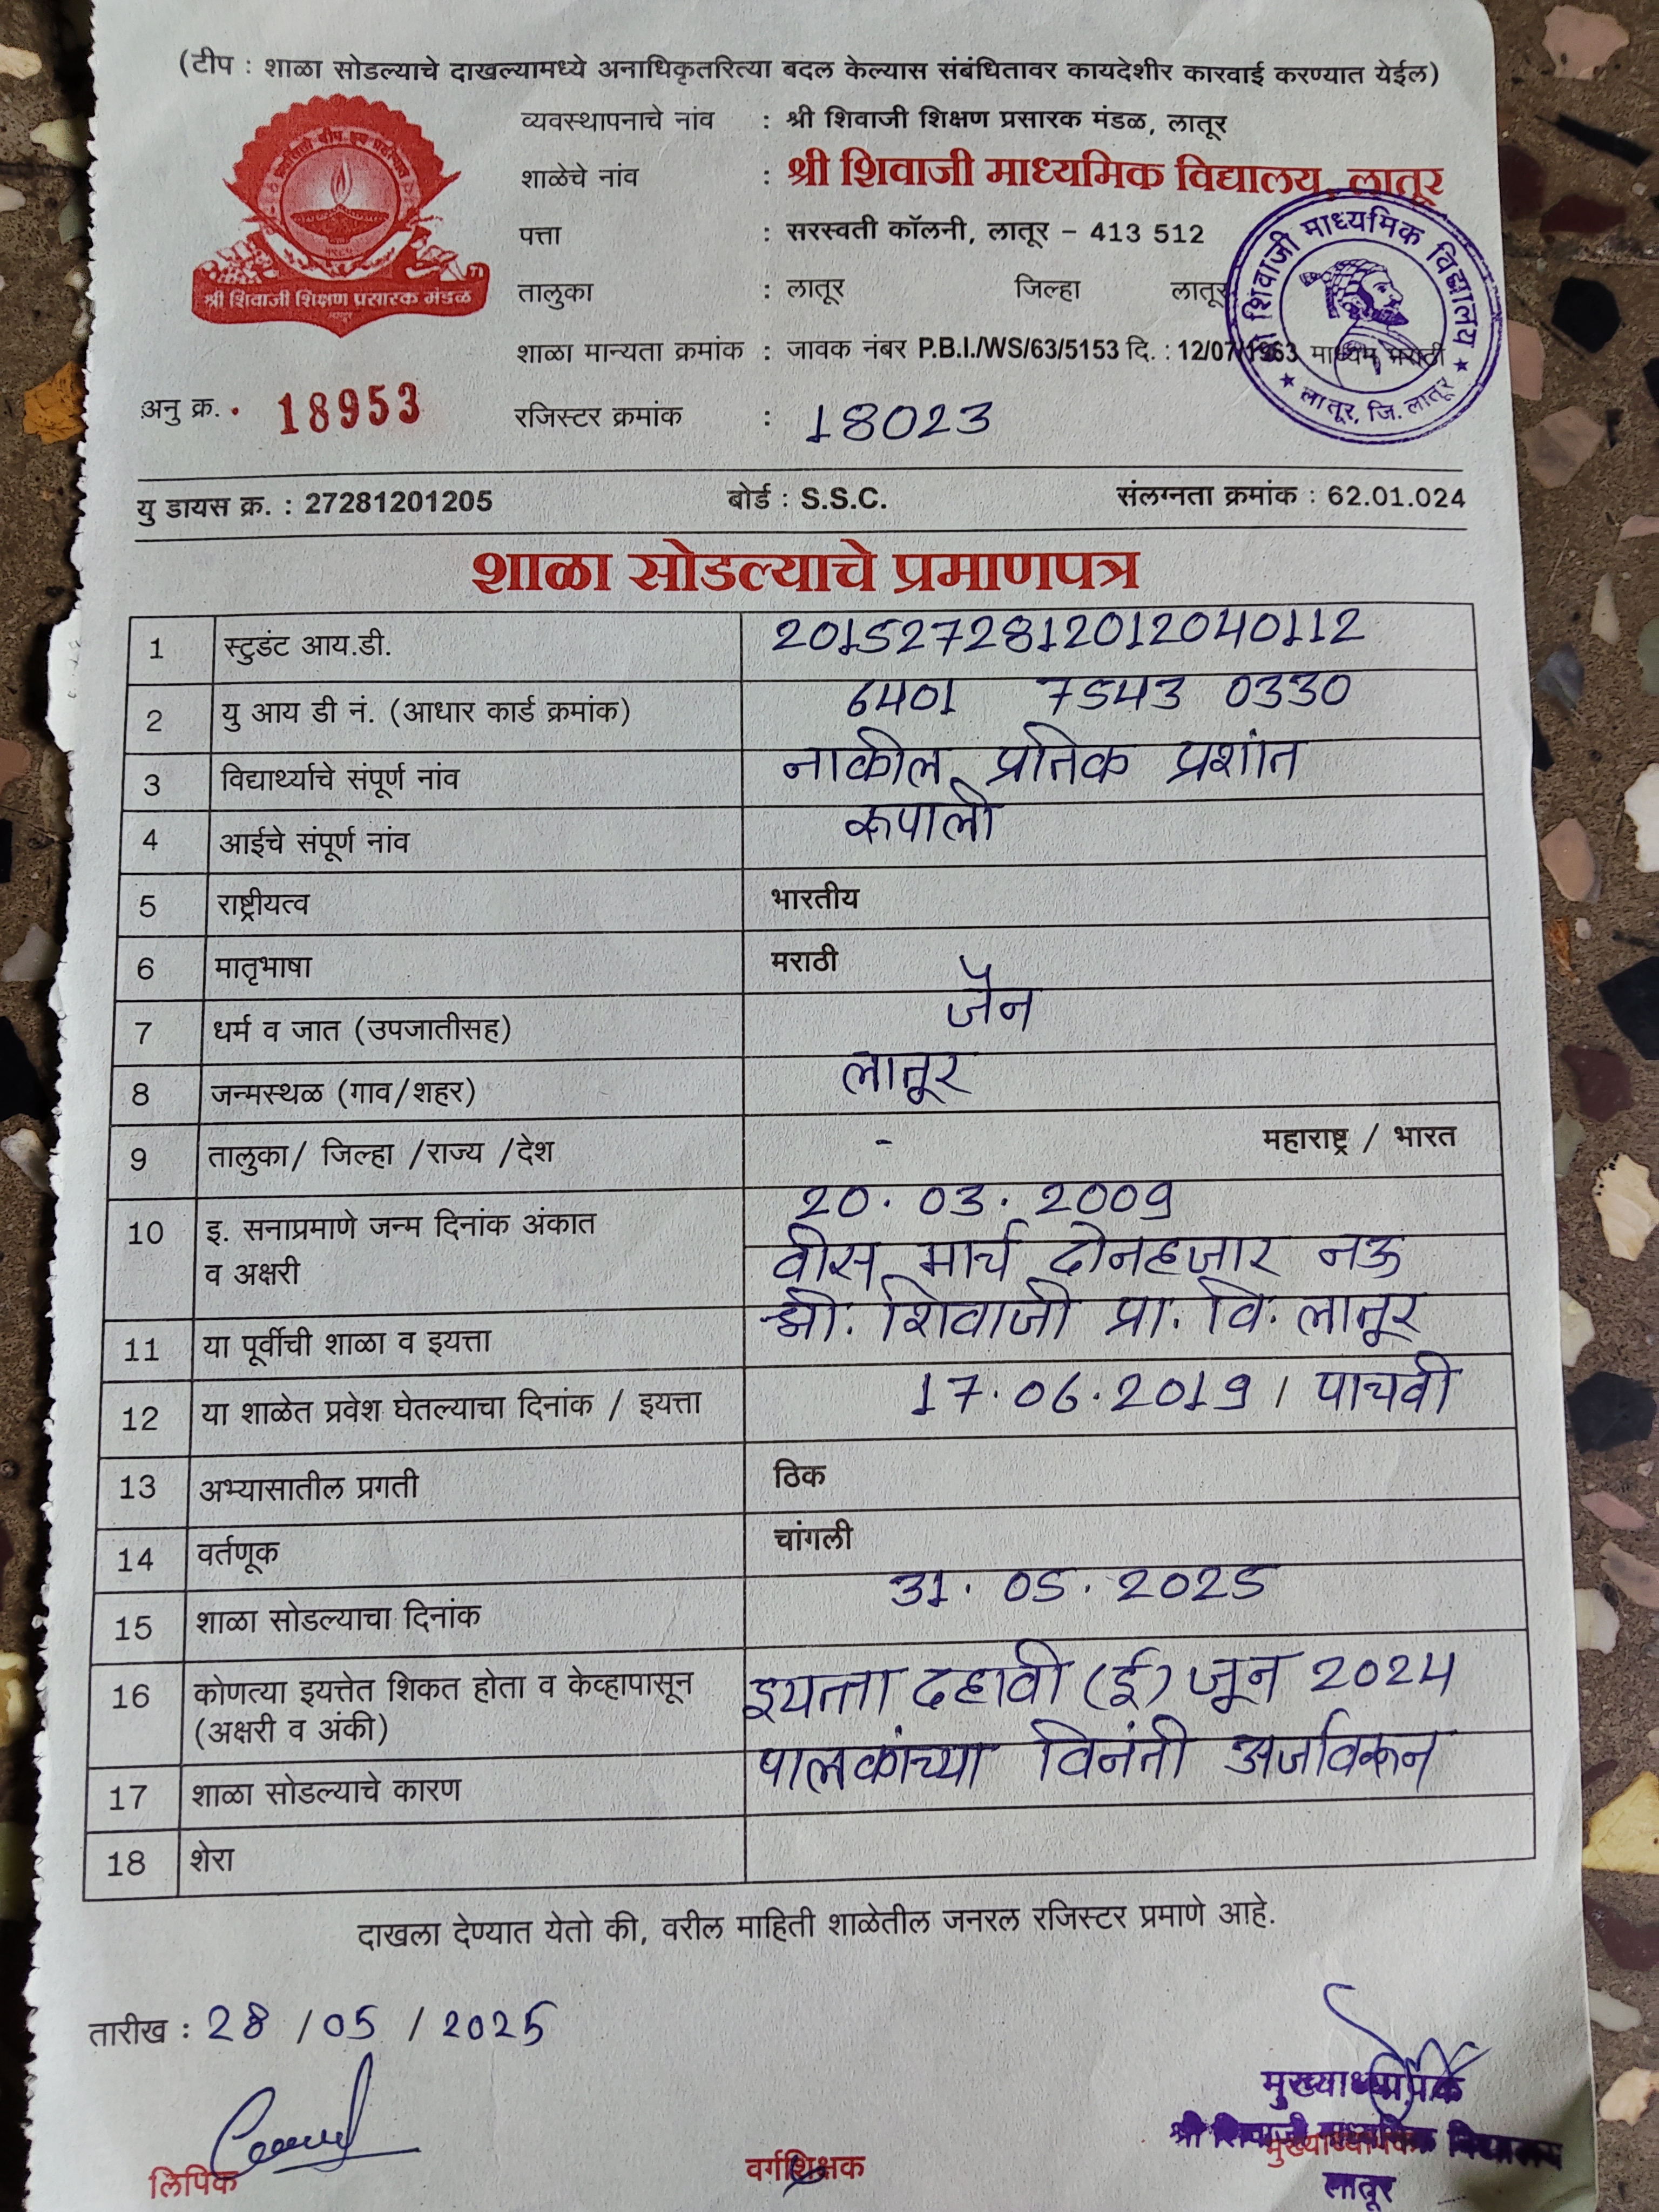 (टीप : शाळा सोडल्याचे दाखल्यामध्ये अनाधिकृतरित्या बदल केल्यास संबंधितावर कायदेशीर कारवाई करण्यात येईल)
व्यवस्थापनाचे नांव : श्री शिवाजी शिक्षण प्रसारक मंडळ, लातूर
शाळेचे नांव : श्री शिवाजी माध्यमिक विद्यालय, लातूर
पत्ता : सरस्वती कॉलनी, लातूर – 413 512
तालुका : लातूर जिल्हा लातूर
श्री शिवाजी शिक्षण प्रसारक मंडळ
शाळा मान्यता क्रमांक : जावक नंबर P.B.I./WS/63/5153 दि. : 12/07/1963 माध्यम मराठी
शिवाजी माध्यमिक विद्यालय
लातूर, जि. लातूर
अनु क्र. 18953 रजिस्टर क्रमांक : 18023
यु डायस क्र. : 27281201205 बोर्ड : S.S.C. संलग्नता क्रमांक : 62.01.024
शाळा सोडल्याचे प्रमाणपत्र
1 स्टुडंट आय.डी. 2015272812012040112
2 यु आय डी नं. (आधार कार्ड क्रमांक) 6401 7543 0330
3 विद्यार्थ्याचे संपूर्ण नांव नाकील प्रतिक प्रशांत
4 आईचे संपूर्ण नांव रूपाली
5 राष्ट्रीयत्व भारतीय
6 मातृभाषा मराठी
7 धर्म व जात (उपजातीसह) जैन
8 जन्मस्थळ (गाव/शहर) लातूर
9 तालुका/ जिल्हा /राज्य /देश - महाराष्ट्र / भारत
10 इ. सनाप्रमाणे जन्म दिनांक अंकात 20.03.2009
व अक्षरी वीस मार्च दोनहजार नऊ
11 या पूर्वीची शाळा व इयत्ता श्री. शिवाजी प्रा. वि. लातूर
12 या शाळेत प्रवेश घेतल्याचा दिनांक / इयत्ता 17.06.2019 / पाचवी
13 अभ्यासातील प्रगती ठिक
14 वर्तणूक चांगली
15 शाळा सोडल्याचा दिनांक 31.05.2025
16 कोणत्या इयत्तेत शिकत होता व केव्हापासून इयत्ता दहावी (ई) जून 2024
(अक्षरी व अंकी)
17 शाळा सोडल्याचे कारण पालकांच्या विनंती अर्जावरून
18 शेरा
दाखला देण्यात येतो की, वरील माहिती शाळेतील जनरल रजिस्टर प्रमाणे आहे.
तारीख : 28 / 05 / 2025
मुख्याध्यापक
श्री शिवाजी माध्यमिक विद्यालय
लिपिक वर्गशिक्षक मुख्याध्यापक
लातूर